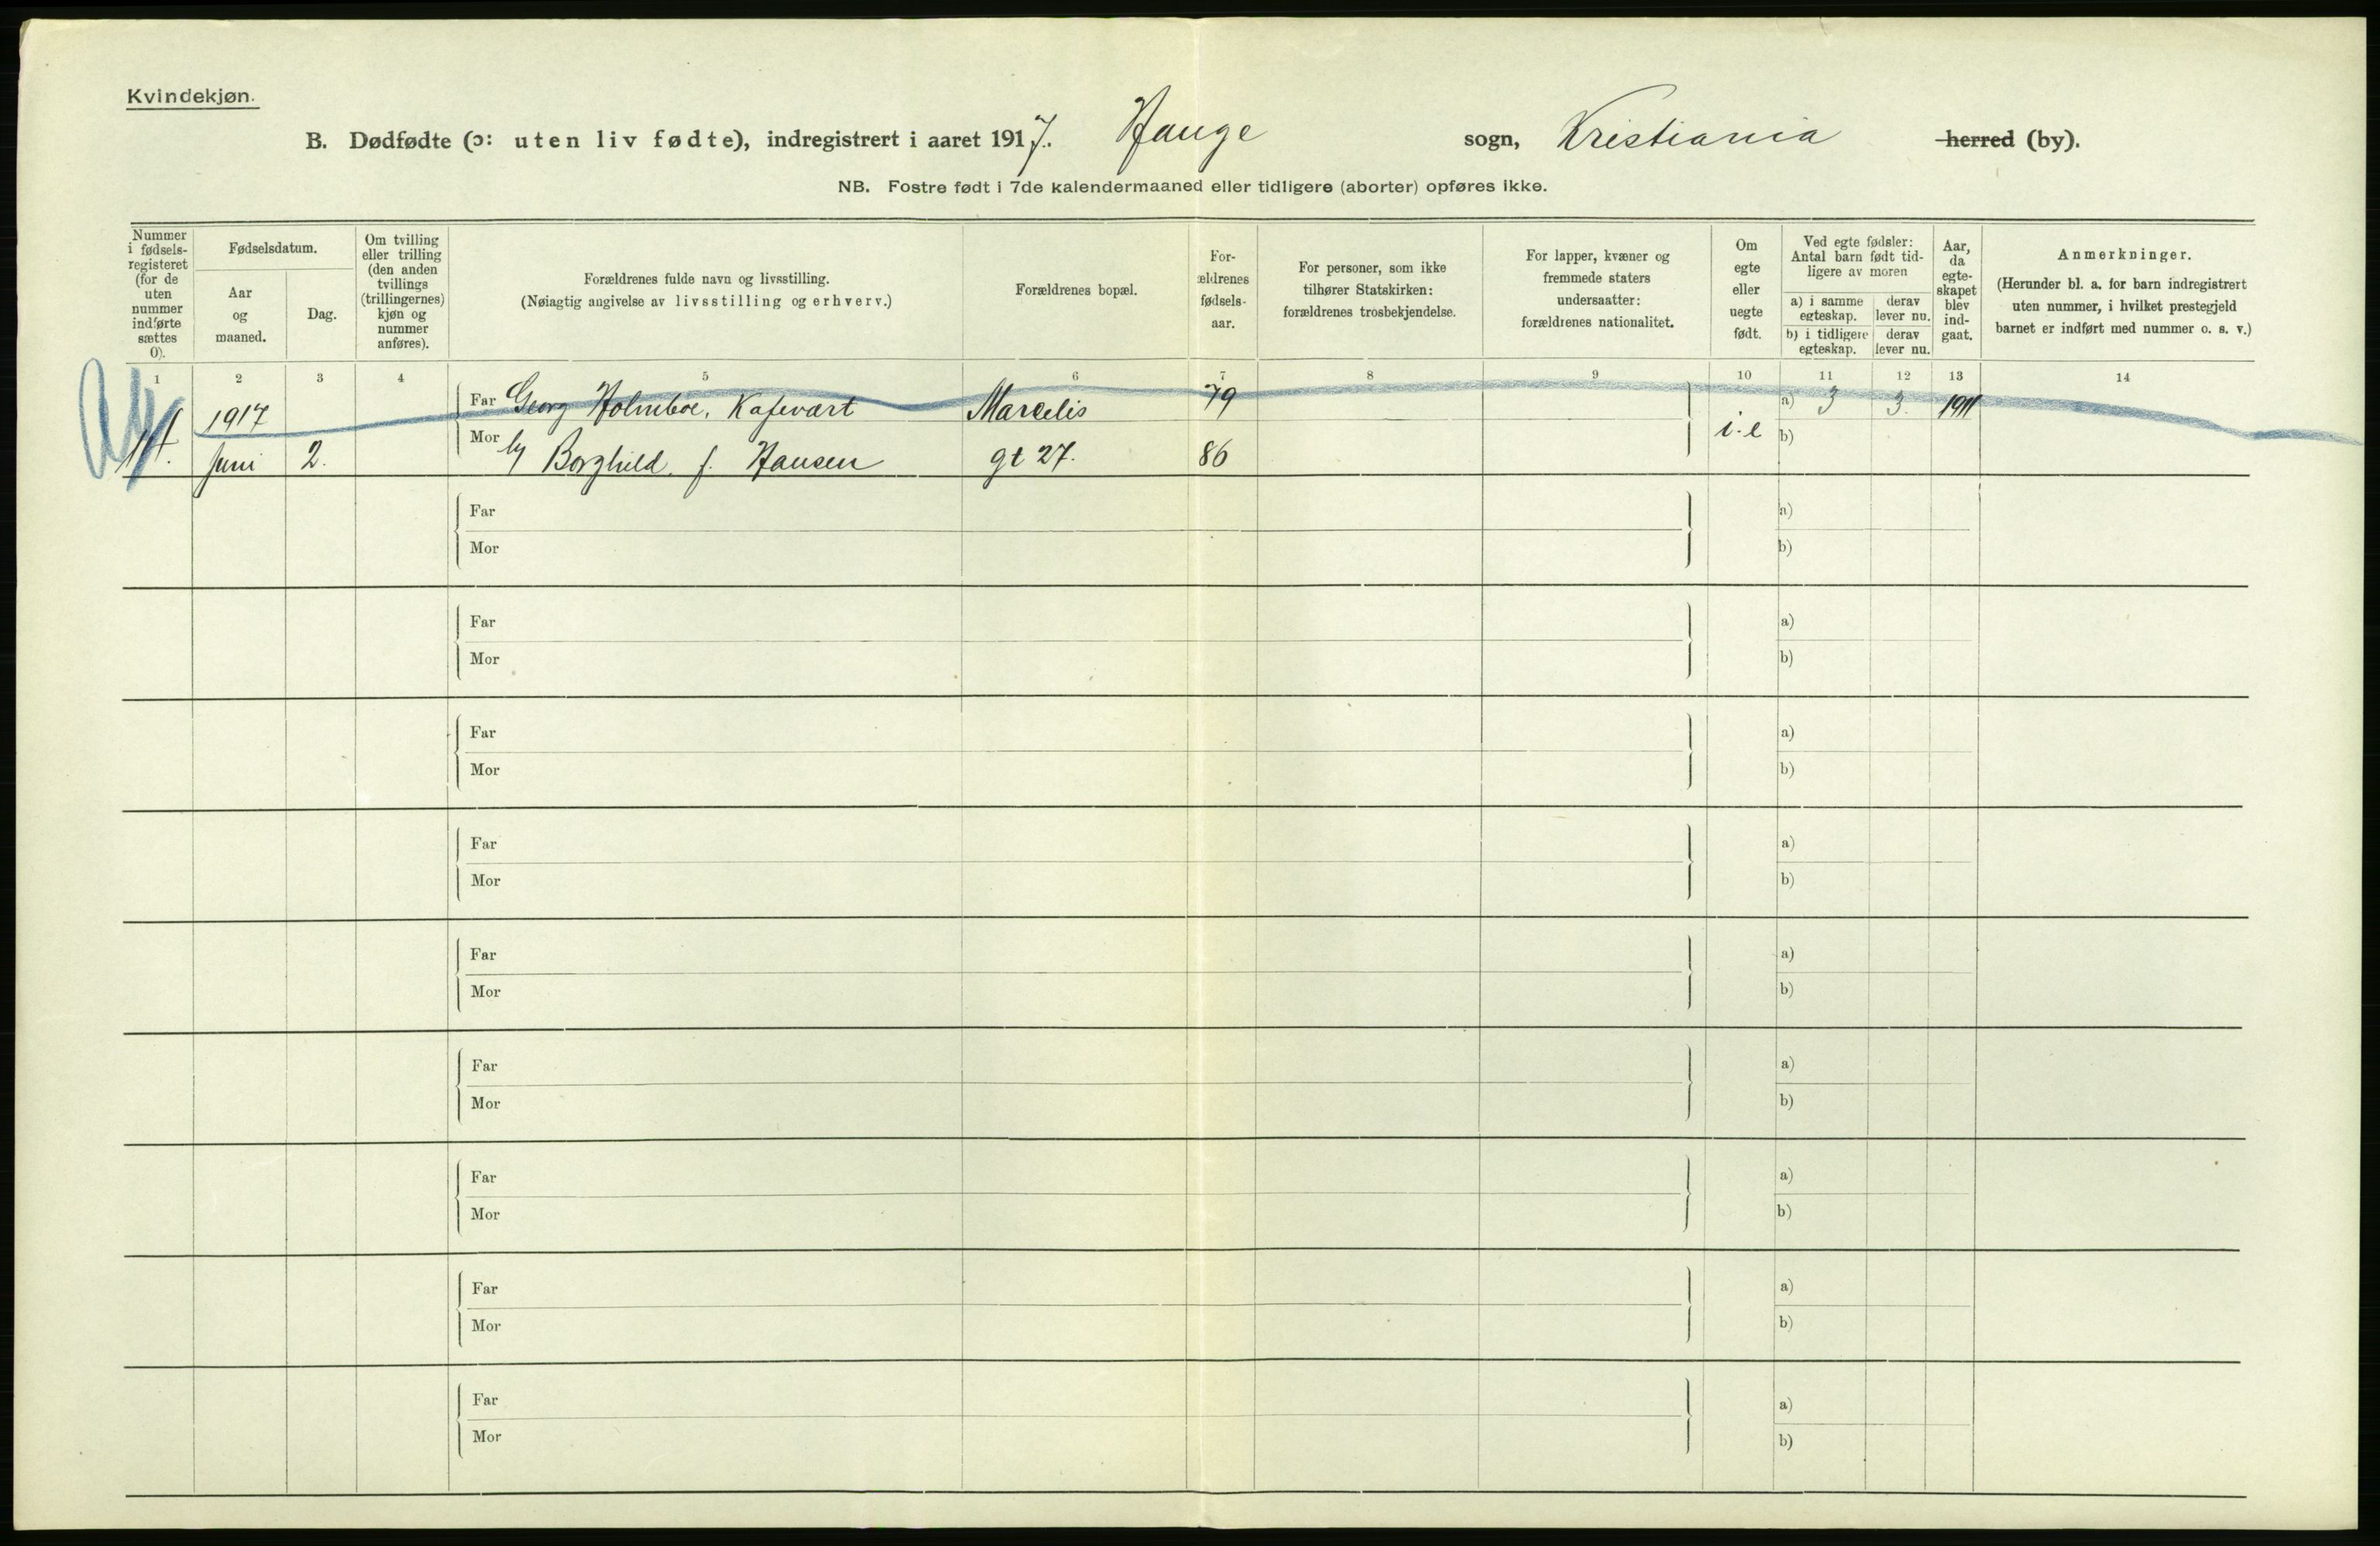 Kvindekjøn.
B. Dødfødte (ɔ: uten liv fødte), indregistrert i aaret 1917. Hauge sogn, Kristiania herred (by).
NB. Fostre født i 7de kalendermaaned eller tidligere (aborter) opføres ikke.
Nummer i fødsels- registeret (for de uten nummer indførte sættes 0).
Fødselsdatum.
Aar og maaned.
Dag.
Om tvilling eller trilling (den anden tvillings (trillingernes) kjøn og nummer anføres).
Forældrenes fulde navn og livsstilling.
(Nøiagtig angivelse av livsstilling og erhverv.)
Forældrenes bopæl.
For- ældrenes fødsels- aar.
For personer, som ikke tilhører Statskirken: forældrenes trosbekjendelse.
For lapper, kvæner og fremmede staters undersaatter: forældrenes nationalitet.
Om egte eller uegte født.
Ved egte fødsler: Antal barn født tid- ligere av moren
a) i samme egteskap. derav lever nu.
b) i tidligere egteskap. derav lever nu.
Aar, da egte- skapet blev ind- gaat.
Anmerkninger.
(Herunder bl. a. for barn indregistrert uten nummer, i hvilket prestegjeld barnet er indført med nummer o. s. v.)
1 2 3 4 5 6 7 8 9 10 11 12 13 14
1917 Far Georg Holmboe, Kafevært Marcelis 79 a) 3 3. 1911
Juni 2. Mor Borghild f. Hansen gt 27. 86 i.e b)
Far a)
Mor b)
Far a)
Mor b)
Far a)
Mor b)
Far a)
Mor b)
Far a)
Mor b)
Far a)
Mor b)
Far a)
Mor b)
Far a)
Mor b)
Far a)
Mor b)